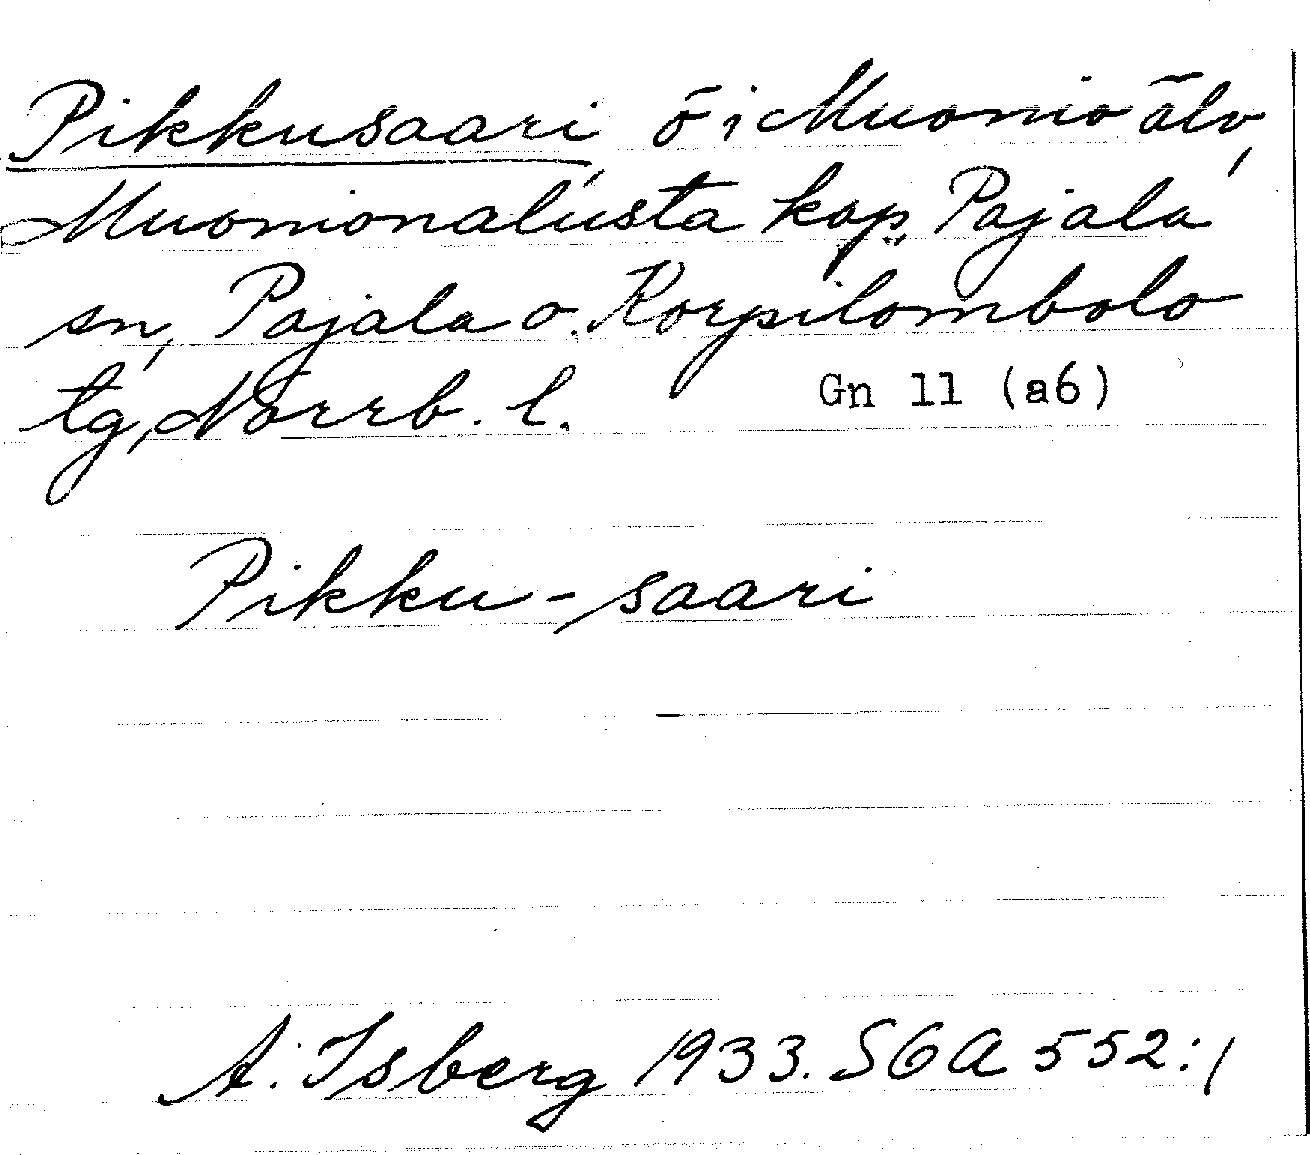 Pikkusaari, ö i Muonio älv,
Muonionalusta kap., Pajala
sn, Pajala o. Korpilombolo
tg, Norrb. l. Gn 11 (a6)
Pikku-saari
A. Isberg 1933. SGA 552:1